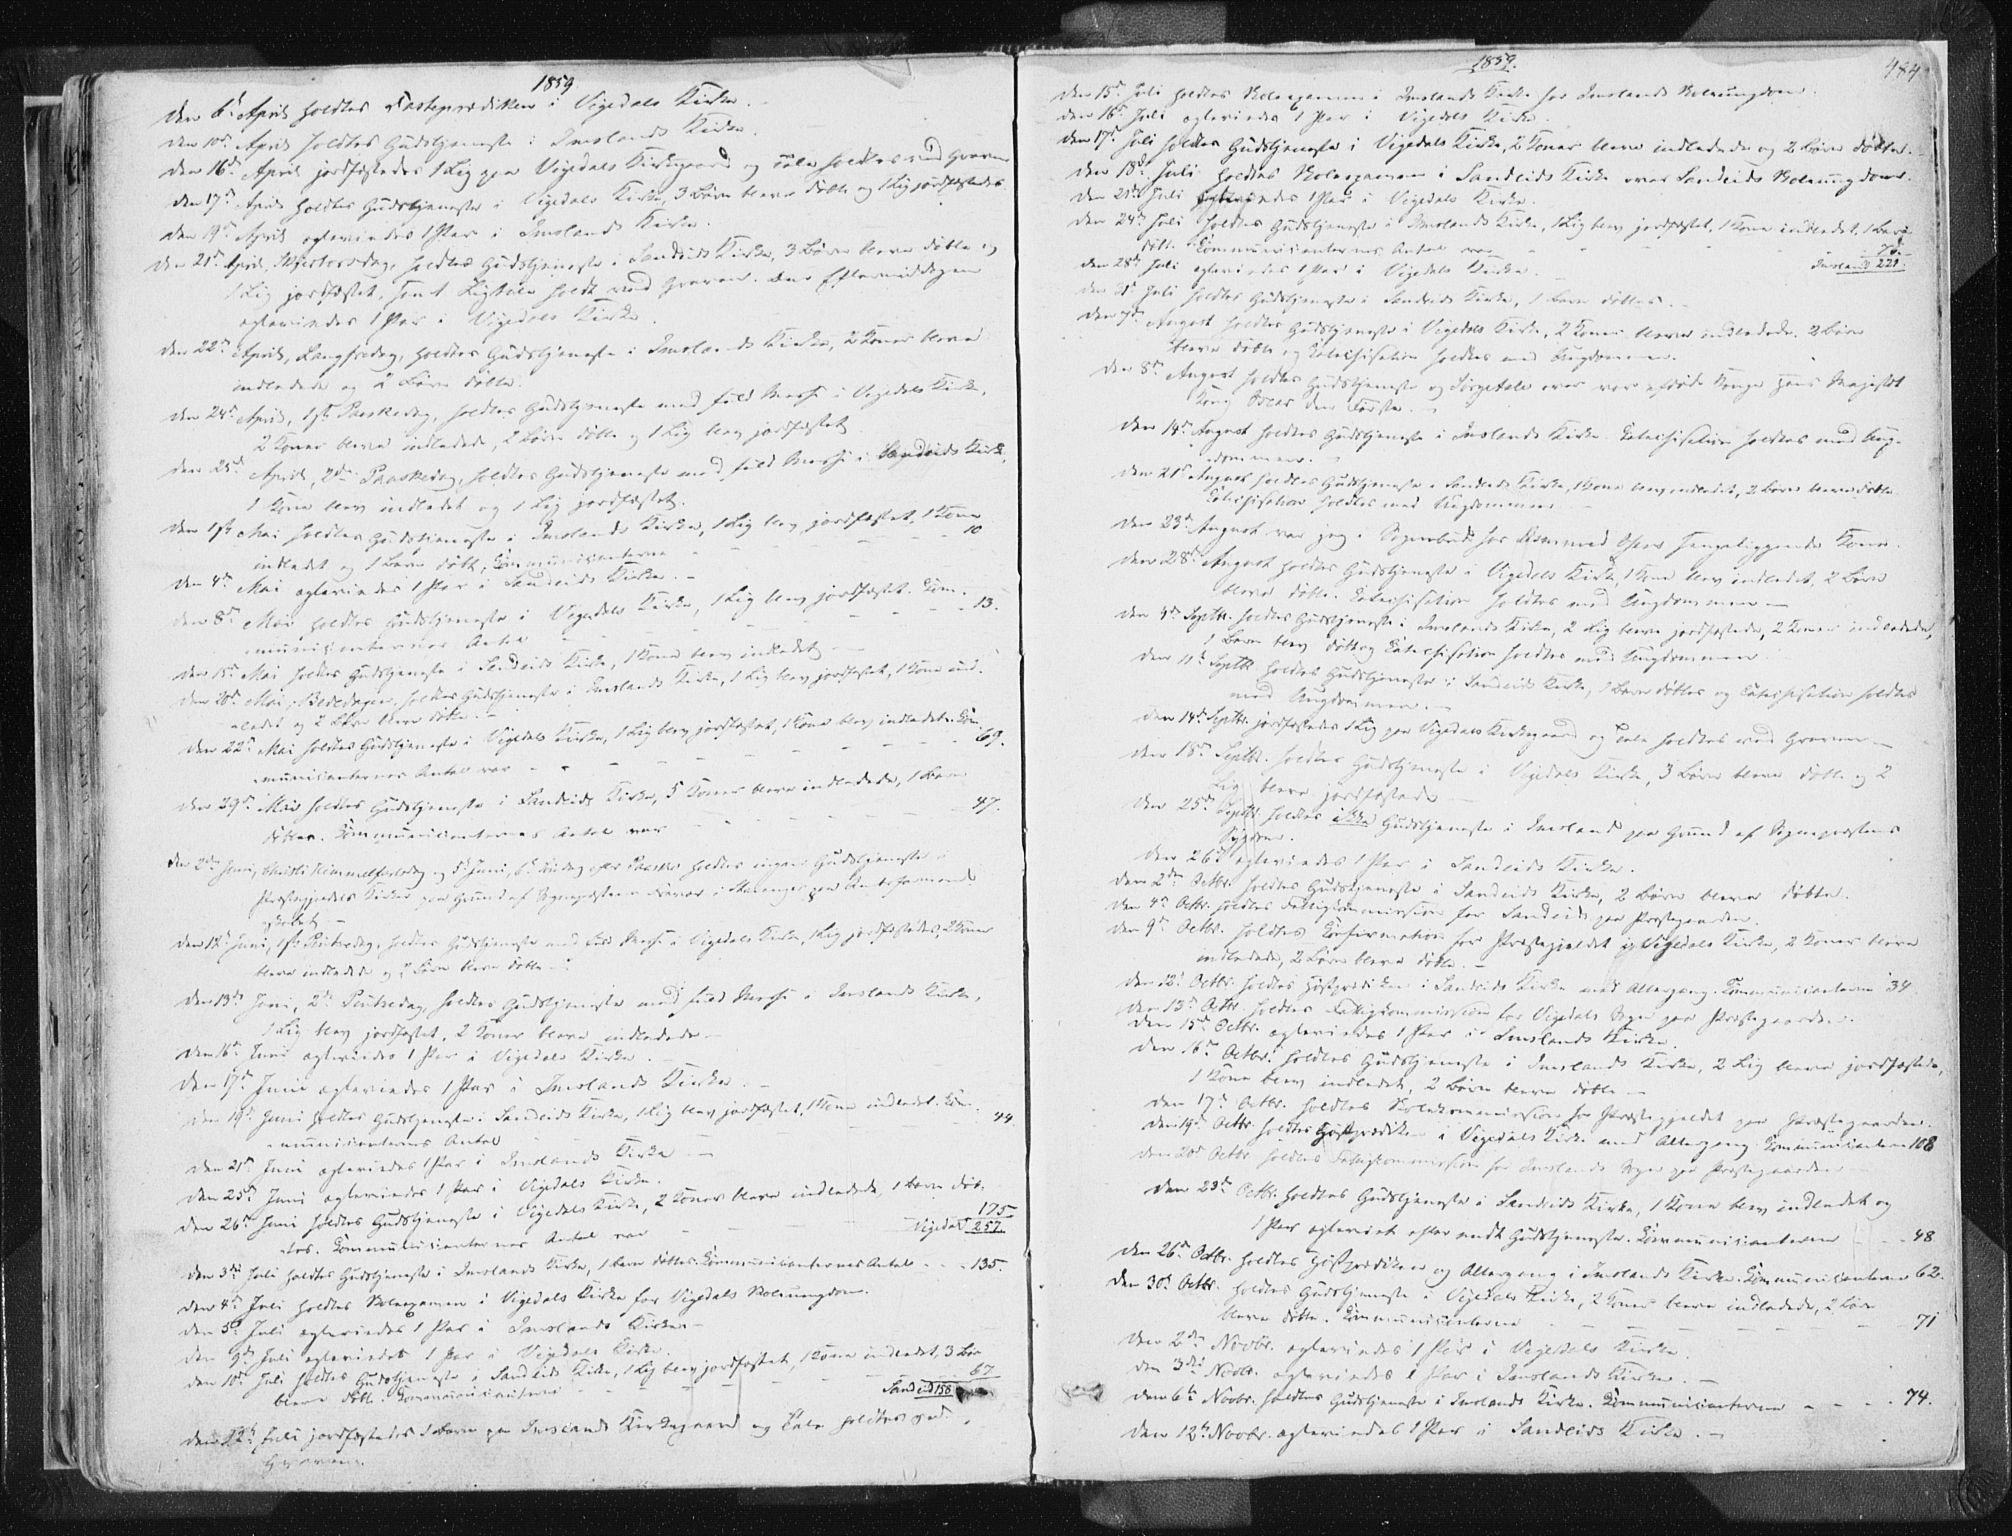 1859
den 6d April holdtes Fasteprædiken i Vigedals Kirke. -
den 10d April holdtes Gudstjeneste i Imslands Kirke.
den 16de April jordfæstedes 1 Lig paa Vigedals Kirkegaard og Tale holdtes ved Graven
den 17d April holdtes Gudstjeneste i Vigedals Kirke, 3 Børn bleve døbte og 1 Lig jordfæstedes
den 19d April egteviedes 1 Par i Imslands Kirke.
den 21d April, Skjertorsdag, holdtes Gudstjeneste i Sandeids Kirke, 3 Børn bleve døbte og
1 Lig jordfæstet, samt Ligtale holdt ved Graven. Den Eftermiddagen
egteviedes 1 Par i Vigedals Kirke.
den 22d April, Langfredag, holdtes Gudstjeneste i Imslands Kirke, 2 Koner bleve
indledede og 2 Børn døbte.
den 24d April, 1ste Paaskedag, holdtes Gudstjeneste med fuld Messe i Vigedals Kirke,
2 Koner bleve indledede, 2 Børn døbte og 1 Lig blev jordfæstet
den 25d April, 2den Paaskedag, holdtes Gudstjeneste med fuld Messe i Sandeids Kirke,
1 Kone blev indledet og 1 Lig jordfæstet.
den 1ste Mai holdtes Gudstjeneste i Imslands Kirke, 1 Lig blev jordfæstet, 1 Kone
indledet og 1 Barn døbt, Communicanterne - - - 10
den 4de Mai egteviedes 1 Par i Sandeids Kirke. -
den 8d Mai holdtes Gudstjeneste i Vigedals Kirke, 1 Lig blev jordfæstet. Com-
municanternes Antal - - - 13.
den 15d Mai holdtes Gudstjeneste i Sandeids Kirke, 1 Kone blev indledet
den 20d Mai, Bededagen, holdtes Gudstjeneste i Imslands Kirke, 1 Lig blev jordfæstet, 1 Kone ind-
ledet og 2 Børn bleve døbte. -
den 22d Mai holdtes Gudstjeneste i Vigedals Kirke, 1 Lig blev jordfæstet, 1 Kone blev indledet. Com-
municanternes Antal var - - - 69.
den 29d Mai holdtes Gudstjeneste i Sandeids Kirke, 5 Koner bleve indledede, 1 Barn
døbtes. Communicanternes Antal var - - - 47.
den 2den Juni, Christi Himmelfartsdag og 5d Juni, 6te Søndag efter Paaske holdtes ingen Gudstjeneste i
Præstegjeldets Kirker paa Grund af Sognepræstens Fravær i Stavanger paa
den 12d Juni, 1ste Pintsedag, holdtes Gudstjeneste med fuld Messe i Vigedals Kirke, 1 Lig jordfæstedes, 2 Koner
bleve indledede og 2 Børn bleve døbte -
den 13de Juni, 2d Pintsedag, holdtes Gudstjeneste med fuld Messe i Imslands Kirke,
1 Lig blev jordfæstet, 2 Koner bleve indledede -
den 16d Juni egteviedes 1 Par i Vigedals Kirke. -
den 17d Juni egteviedes 1 Par i Imslands Kirke. -
den 19d Juni holdtes Gudstjeneste i Sandeids Kirke, 1 Lig blev jordfæstet, 1 Kone indledet. Com-
municanternes Antal - - - 44.
den 21d Juni egteviedes 1 Par i Imslands Kirke -
den 25d Juni egteviedes 1 Par i Vigedals Kirke.
den 26d Juni holdtes Gudstjeneste i Vigedals Kirke, 2 Koner bleve indledede, 1 Barn døb-
tes. Communicanternes Antal var - - - 175
Vigedal 257.
den 3de Juli holdtes Gudstjeneste i Imslands Kirke, 1 Barn døbtes. Communicanternes Antal - - - 135.
den 4d Juli holdtes Skoleexamen i Vigedals Kirke for Vigedals Skoleungdom.
den 5d Juli egteviedes 1 Par i Imslands Kirke. -
den 9d Juli egteviedes 1 Par i Vigedals Kirke.
den 10d Juli holdtes Gudstjeneste i Sandeids Kirke, 1 Lig blev jordfæstet, 1 Kone indledet, 3 Børn
bleve døbte. Communicanterne - - - 67
Sandeid 158
den 12d Juli jordfæstedes 1 Barn paa Imslands Kirkegaard og Tale holdtes ved
Graven.
1859.
484
den 15d Juli holdtes Skoleexamen i Imslands Kirke for Imslands Skoleungdom.
den 16d Juli egteviedes 1 Par i Vigedals Kirke.
den 17d Juli holdtes Gudstjeneste i Vigedals Kirke, 2 Koner bleve indledede og 2 Børn døbte. -
den 18d Juli holdtes Skoleexamen i Sandeids Kirke over Sandeids Skoleungdom.
den 21d Juli egteviedes 1 Par i Vigedals Kirke.
den 24d Juli holdtes Gudstjeneste i Imslands Kirke, 1 Lig blev jordfæstet, 1 Kone indledet, 1 Barn
døbt. Communicanternes Antal var - - - 76.
Imsland 221.
den 28d Juli egteviedes 1 Par i Vigedals Kirke.
den 31d Juli holdtes Gudstjeneste i Sandeids Kirke, 1 Barn døbtes. -
den 7d August holdtes Gudstjeneste i Vigedals Kirke, 2 Koner bleve indledede. 2 Børn
bleve døbte og Catechisation holdtes med Ungdommen.
den 8d August holdtes Gudstjeneste og Sørgetale over vor afdøde Konge Hans Majestet
Kong Oscar den Første. -
den 14d August holdtes Gudstjeneste i Imslands Kirke. Catechisation holdtes med Ung-
dommen. -
den 21d August holdtes Gudstjeneste i Sandeids Kirke, 1 Kone blev indledet, 2 Børn bleve døbte
Catechisation holdtes med Ungdommen -
den 23d August var jeg i Sognebud hos sengeliggende Kone.
den 28d August holdtes Gudstjeneste i Vigedals Kirke, 1 Kone blev indledet, 2 Børn
bleve døbte. Catechisation holdtes med Ungdommen -
den 4de Septbr. holdtes Gudstjeneste i Imslands Kirke, 2 Lig bleve jordfæstede, 2 Koner indledede,
1 Barn blev døbt og Catechisation holdtes med Ungdommen
den 11te Septbr holdtes Gudstjeneste i Sandeids Kirke, 1 Barn døbtes og Catechisation holdtes
med Ungdommen. -
den 14d Septbr. jordfæstedes 1 Lig paa Vigedals Kirkegaard og Tale holdtes ved Graven -
den 18d Septbr. holdtes Gudstjeneste i Vigedals Kirke, 3 Børn bleve døbte og 2
Lig bleve jordfæstede -
den 25d Septbr holdtes ikke Gudstjeneste i Imsland paa Grund af Sognepræstens
Sygdom.
den 26d egteviedes 1 Par i Sandeids Kirke.
den 2den Octbr. holdtes Gudstjeneste i Sandeids Kirke, 2 Børn bleve døbte.
den 4d Octbr. holdtes Fattigcommission for Sandeid paa Præstegaarden.
den 9d Octbr. holdtes Confirmation for Præstegjeldet i Vigedals Kirke, 2 Koner bleve
indledede, 2 Børn bleve døbte. -
den 12d Octbr. holdtes Høstprædiken i Sandeids Kirke med Altergang. Communicanterne 34
den 13d Octbr. holdtes Fattigcommission for Vigedals Sogn paa Præstegaarden.
den 15d Octbr. egteviedes 1 Par i Imslands Kirke.
den 16d Octbr. holdtes Gudstjeneste i Imslands Kirke, 2 Lig bleve jordfæstede,
1 Kone blev indledet, 2 Børn bleve døbte -
den 17d Octbr. holdtes Skolekommission for Præstegjeldet paa Præstegaarden.
den 19d Octbr. holdtes Høstprædiken i Vigedals Kirke med Altergang Communicanterne 108
den 20d Octbr holdtes Fattigkommission for Imslands Sogn paa Præstegaarden -
den 23d Octbr. holdtes Gudstjeneste i Sandeids Kirke, 1 Kone blev indledet og
1 Par egteviet efter endt Gudstjeneste. Communicanterne - - - 48
den 26d Octbr. holdtes Høstprædiken og Altergang i Imslands Kirke. Communicanterne 62.
den 30d Octbr. holdtes Gudstjeneste i Vigedals Kirke, 2 Koner bleve indledede, 2 Børn
bleve døbte. Communicanterne - - - 71
den 2den Novbr. egteviedes 1 Par i Vigedals Kirke.
den 3die Novbr. egteviedes 1 Par i Imslands Kirke. -
den 6te Novbr. holdtes Gudstjeneste i Imslands Kirke. Communicanterne - - - 74.
den 12te Novbr. egteviedes 1 Par i Sandeids Kirke. -